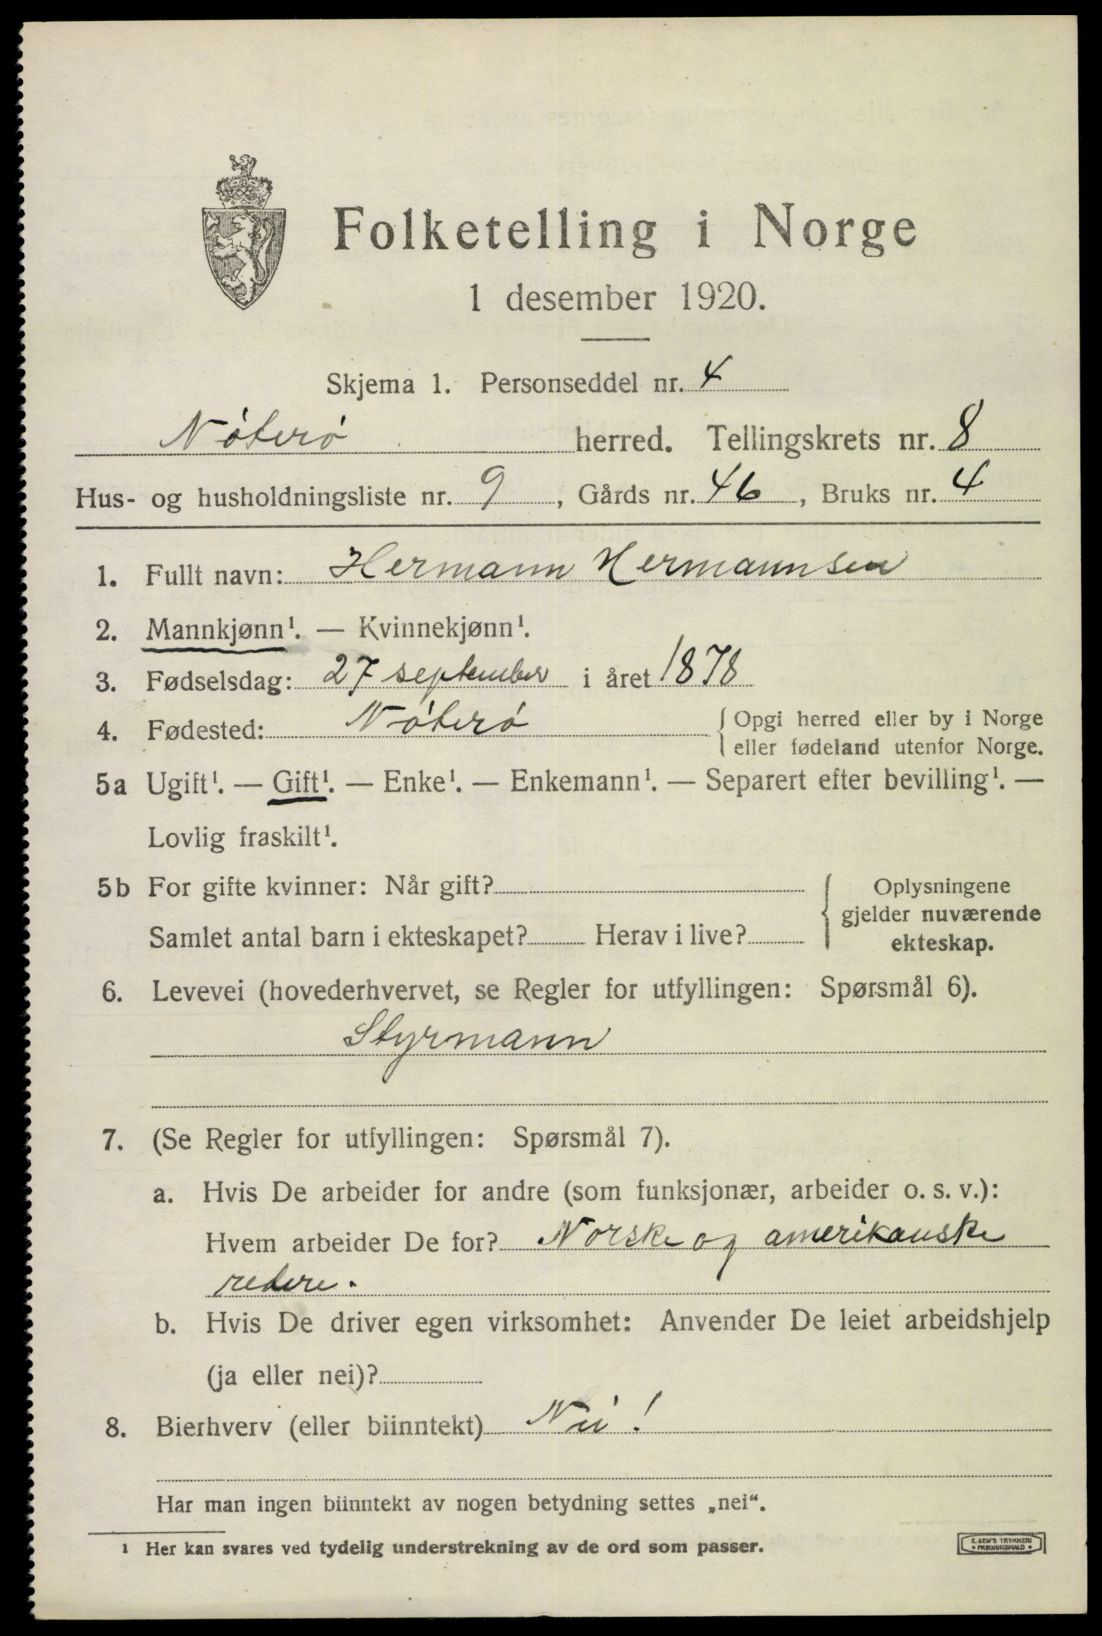 Folketelling i Norge
1 desember 1920.
Skjema 1. Personseddel nr. 4
Nøterø herred. Tellingskrets nr. 8
Hus- og husholdningsliste nr. 9, Gårds nr. 46, Bruks nr. 4
1. Fullt navn: Hermann Hermannsen
2. Mannkjønn¹. — Kvinnekjønn¹.
3. Fødselsdag: 27 september i året 1878
4. Fødested: Nøterø { Opgi herred eller by i Norge
eller fødeland utenfor Norge.
5a Ugift¹. — Gift¹. — Enke¹. — Enkemann¹. — Separert efter bevilling¹. —
Lovlig fraskilt¹.
5b For gifte kvinner: Når gift?
Samlet antal barn i ekteskapet? Herav i live?
{ Oplysningene
gjelder nuværende
ekteskap.
6. Levevei (hovederhvervet, se Regler for utfyllingen: Spørsmål 6).
Styrmann
7. (Se Regler for utfyllingen: Spørsmål 7).
a. Hvis De arbeider for andre (som funksjonær, arbeider o. s. v.):
Hvem arbeider De for? Norske og amerikanske
redere.
b. Hvis De driver egen virksomhet: Anvender De leiet arbeidshjelp
(ja eller nei)?
8. Bierhverv (eller biinntekt) Nei!
Har man ingen biinntekt av nogen betydning settes „nei“.
¹ Her kan svares ved tydelig understrekning av de ord som passer.
E. SEM'S TRYKKERI
FREDRIKSHALD